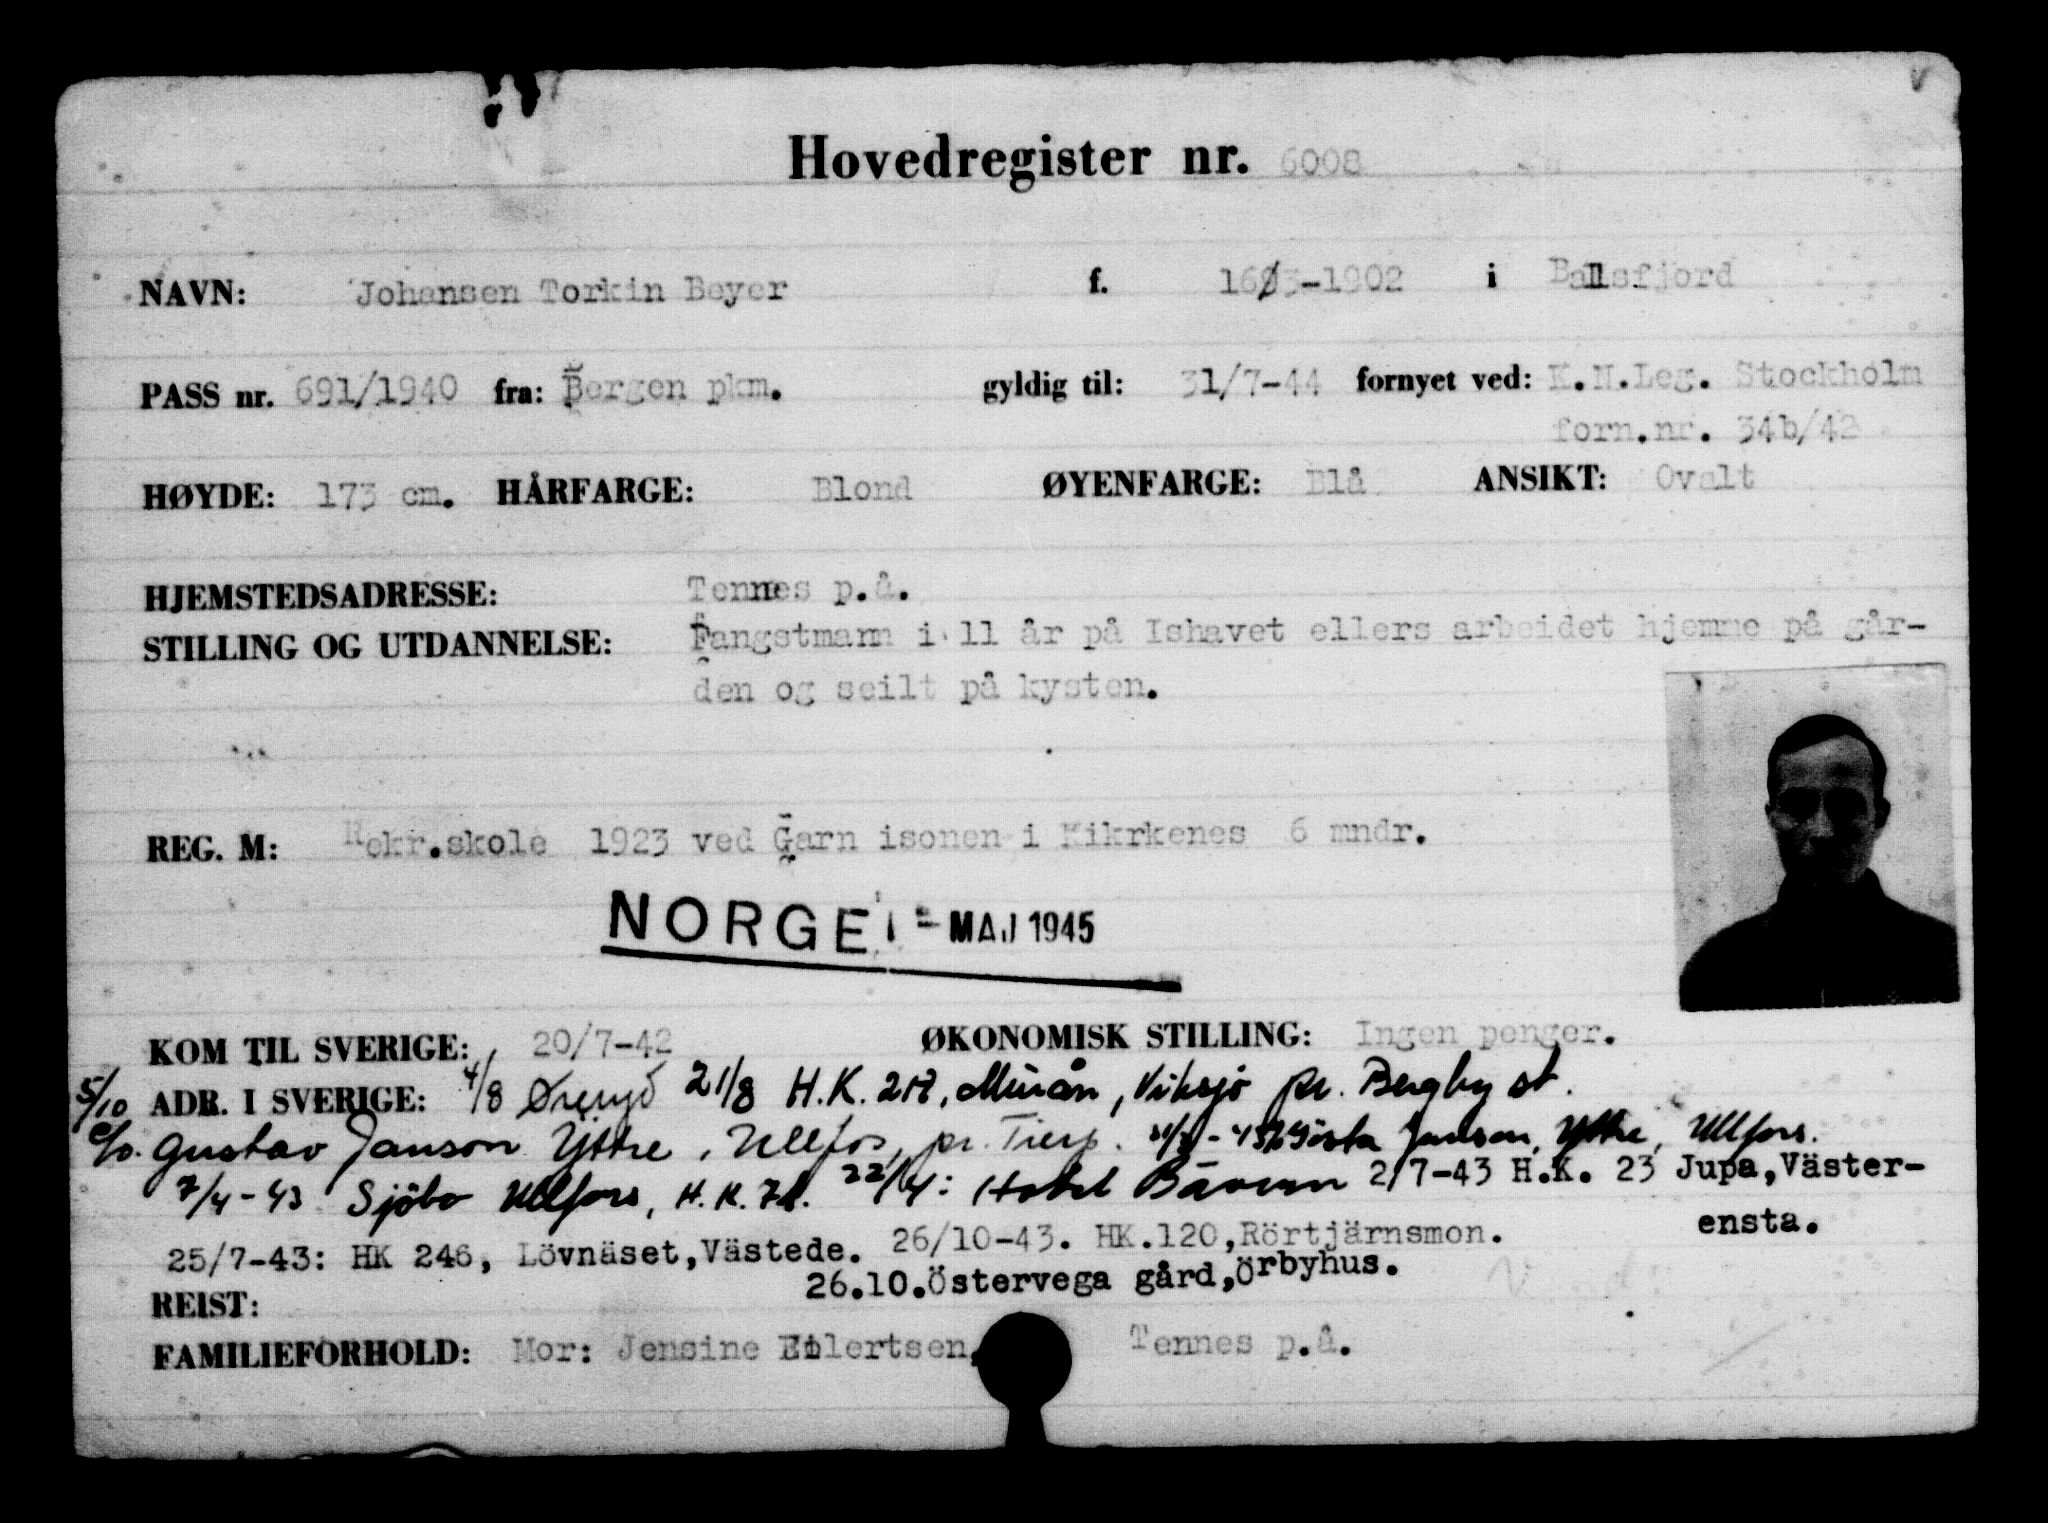 Hovedregister nr. 6008
NAVN: Johansen Torkin Beyer f. 16/3-1902 i Balsfjord
PASS nr. 691/1940 fra: Bergen pkm. gyldig til: 31/7-44 fornyet ved: K.N.Leg. Stockholm
forn.nr. 34b/42
HØYDE: 173 cm. HÅRFARGE: Blond ØYENFARGE: Blå ANSIKT: Ovalt
HJEMSTEDSADRESSE: Tennes p.å.
STILLING OG UTDANNELSE: Fangstmann i 11 år på Ishavet ellers arbeidet hjemme på går-
den og seilt på kysten.
REG. M: Rekr.skole 1923 ved Garn isonen i Kikrkenes 6 mndr.
NORGE MAJ 1945
KOM TIL SVERIGE: 20/7-42 ØKONOMISK STILLING: Ingen penger.
5/10 ADR. I SVERIGE: 4/8 Øreryd 21/8 H.K. 217, Viksjö pr. Bergby st.
c/o. Gustav Janson Yttre, Ullfors, pr. Tierp. Gösta Janson, Yttre, Ullfors.
7/4-43 Sjöbo Ullfors, H.K. 22/4: Hotel Bäveren 2/7-43 H.K. 23 Jupa,Väster-
ensta.
25/7-43: HK 246, Lövnäset,Västede. 26/10-43. HK.120,Rörtjärnsmon.
26.10.Östervega gård,Örbyhus.
REIST:
FAMILIEFORHOLD: Mor: Jensine Eilertsen, Tennes p.å.